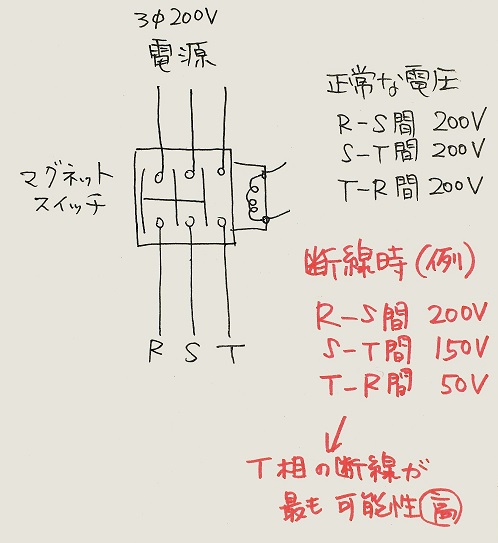 3φ200V
電源
マグネット
スイッチ
R S T
正常な電圧
R-S間 200V
S-T間 200V
T-R間 200V
断線時(例)
R-S間 200V
S-T間 150V
T-R間 50V
T相の断線が
最も可能性高